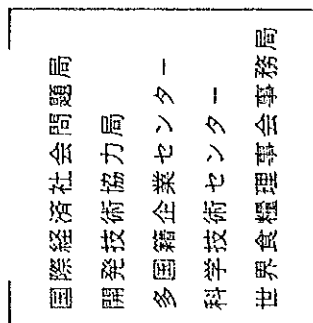 国際経済社会問題局
開発技術協力局
多国籍企業センター
科学技術センター
世界食糧理事会事務局